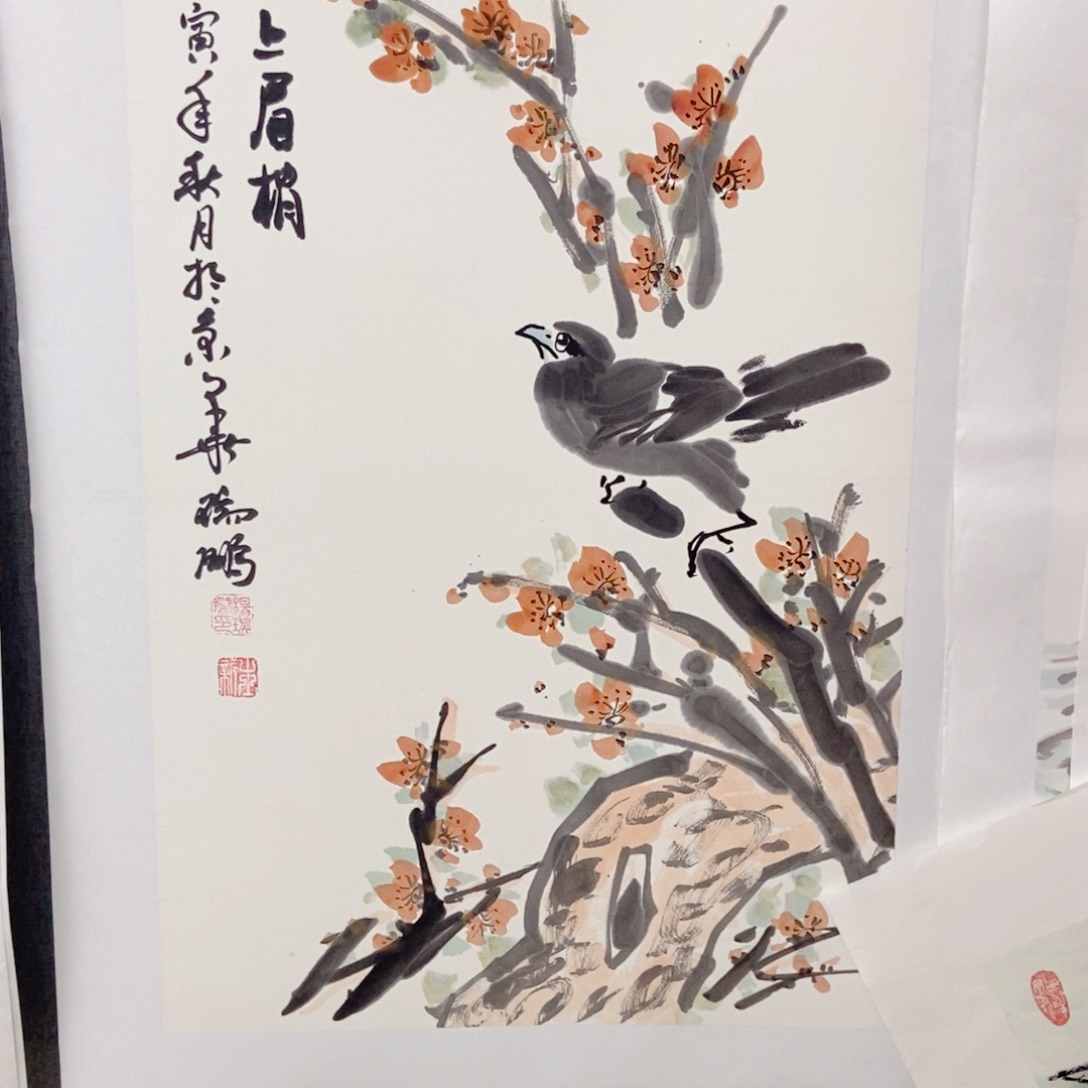 上眉梢
寅年秋月於京华瑞鹏